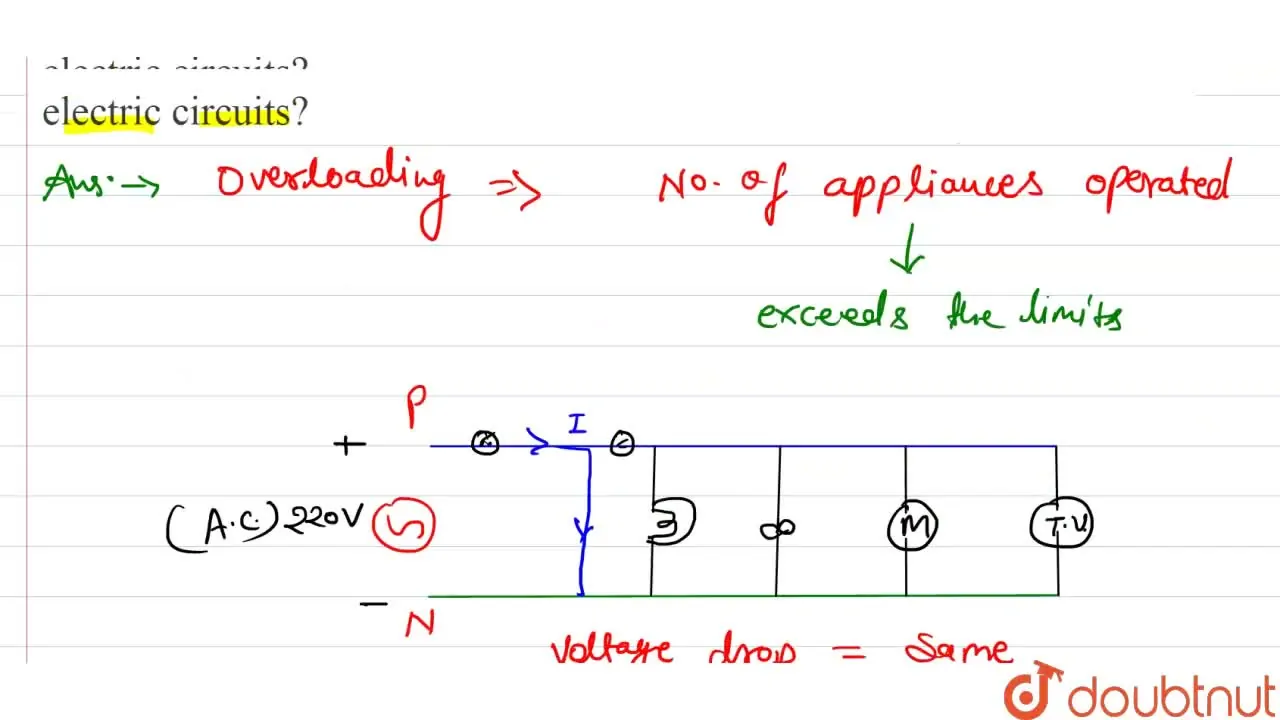 electric circuits?
electric circuits?
Ans:→ Overloading ⇒ No. of appliances operated
↓
exceeds the limits
P
+ I
(A.C.) 220V S M T.V
-
N
Voltage drop = Same
doubtnut